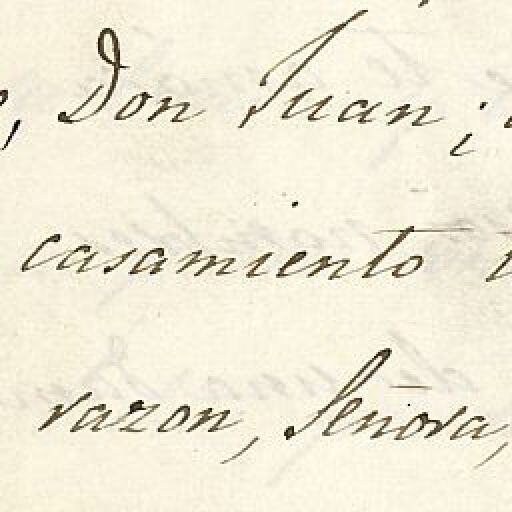 , Don Juan;
casamiento
razon, Señora,